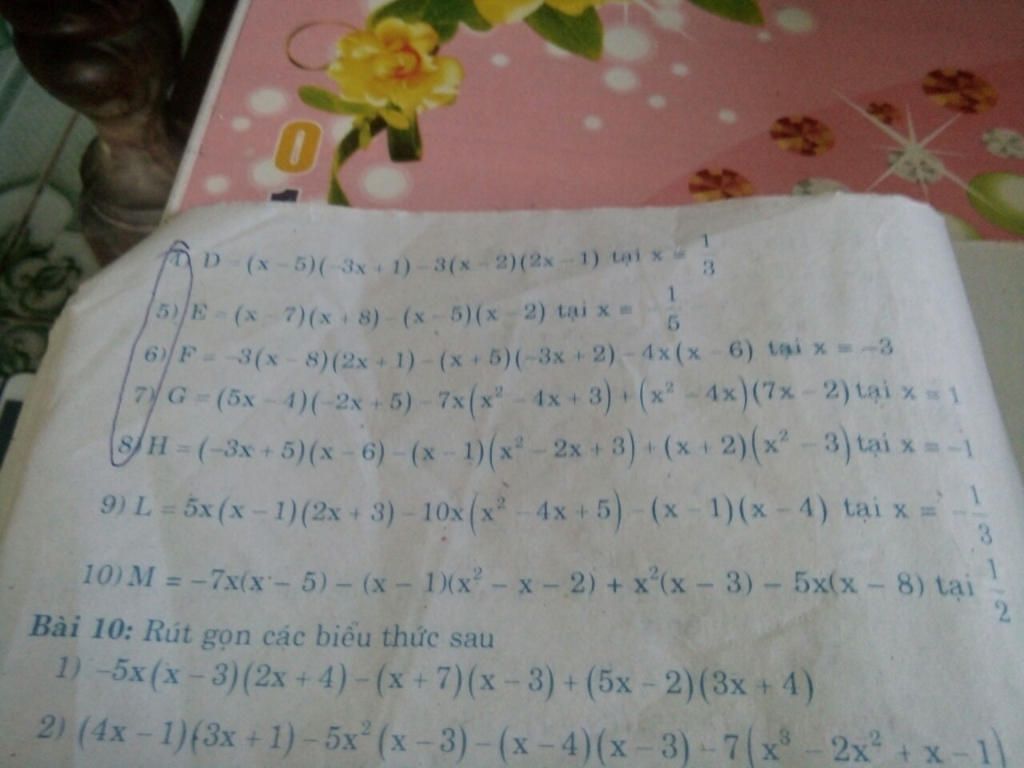 0
1
4) D = (x - 5)(-3x + 1) - 3(x - 2)(2x - 1) tại x = 1/3
5) E = (x - 7)(x + 8) - (x - 5)(x - 2) tại x = -1/5
6) F = -3(x - 8)(2x + 1) - (x + 5)(-3x + 2) - 4x(x - 6) tại x = -3
7) G = (5x - 4)(-2x + 5) - 7x(x² - 4x + 3) + (x² - 4x)(7x - 2) tại x = 1
8) H = (-3x + 5)(x - 6) - (x - 1)(x² - 2x + 3) + (x + 2)(x² - 3) tại x = -1
9) L = 5x(x - 1)(2x + 3) - 10x(x² - 4x + 5) - (x - 1)(x - 4) tại x = -1/3
10) M = -7x(x - 5) - (x - 1)(x² - x - 2) + x²(x - 3) - 5x(x - 8) tại 1/2
Bài 10: Rút gọn các biểu thức sau
1) -5x(x - 3)(2x + 4) - (x + 7)(x - 3) + (5x - 2)(3x + 4)
2) (4x - 1)(3x + 1) - 5x²(x - 3) - (x - 4)(x - 3) - 7(x³ - 2x² + x - 1)